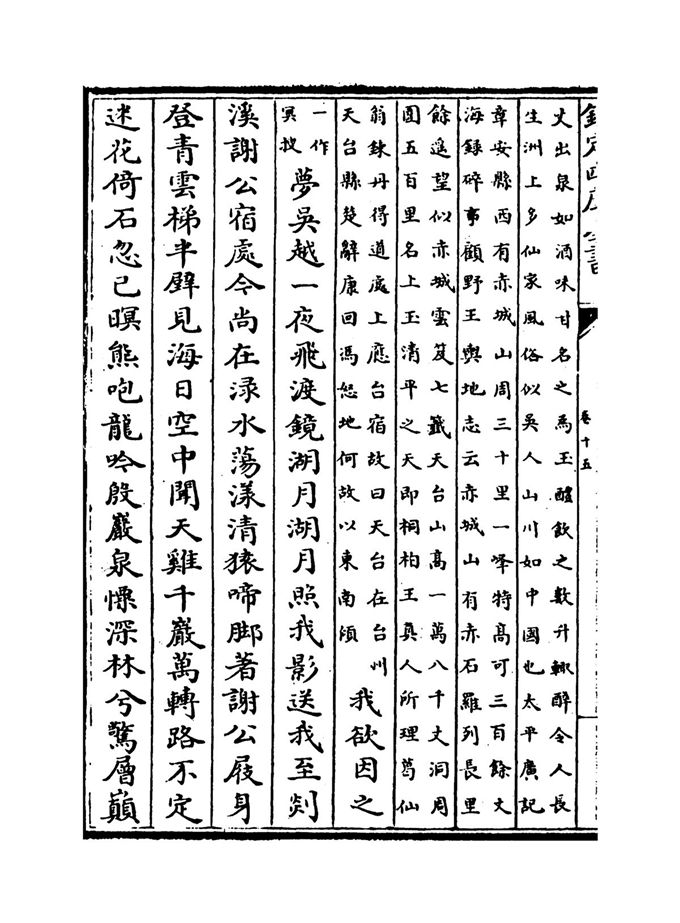 欽定四庫全書
卷十五
丈出泉如酒味甘名之為玉醴飲之數升輙醉令人長
生洲上多仙家風俗似吳人山川如中國也太平廣記
章安縣西有赤城山周三十里一峰特髙可三百餘丈
海録碎事顧野王輿地志云赤城山有赤石羅列長里
餘遥望似赤城雲笈七籤天台山髙一萬八千丈洞周
圓五百里名上玉清平之天即桐柏王真人所理葛仙
翁錬丹得道處上應台宿故曰天台在台州
天台縣楚辭康回馮怒地何故以東南傾
我欲因之
一作
冥搜
夢吳越一夜飛渡鏡湖月湖月照我影送我至剡
溪謝公宿處今尚在渌水蕩漾清猿啼脚著謝公屐身
登青雲梯半壁見海日空中聞天雞千巖萬轉路不定
迷花倚石忽已暝熊咆龍吟殷巖泉慄深林兮驚層巔